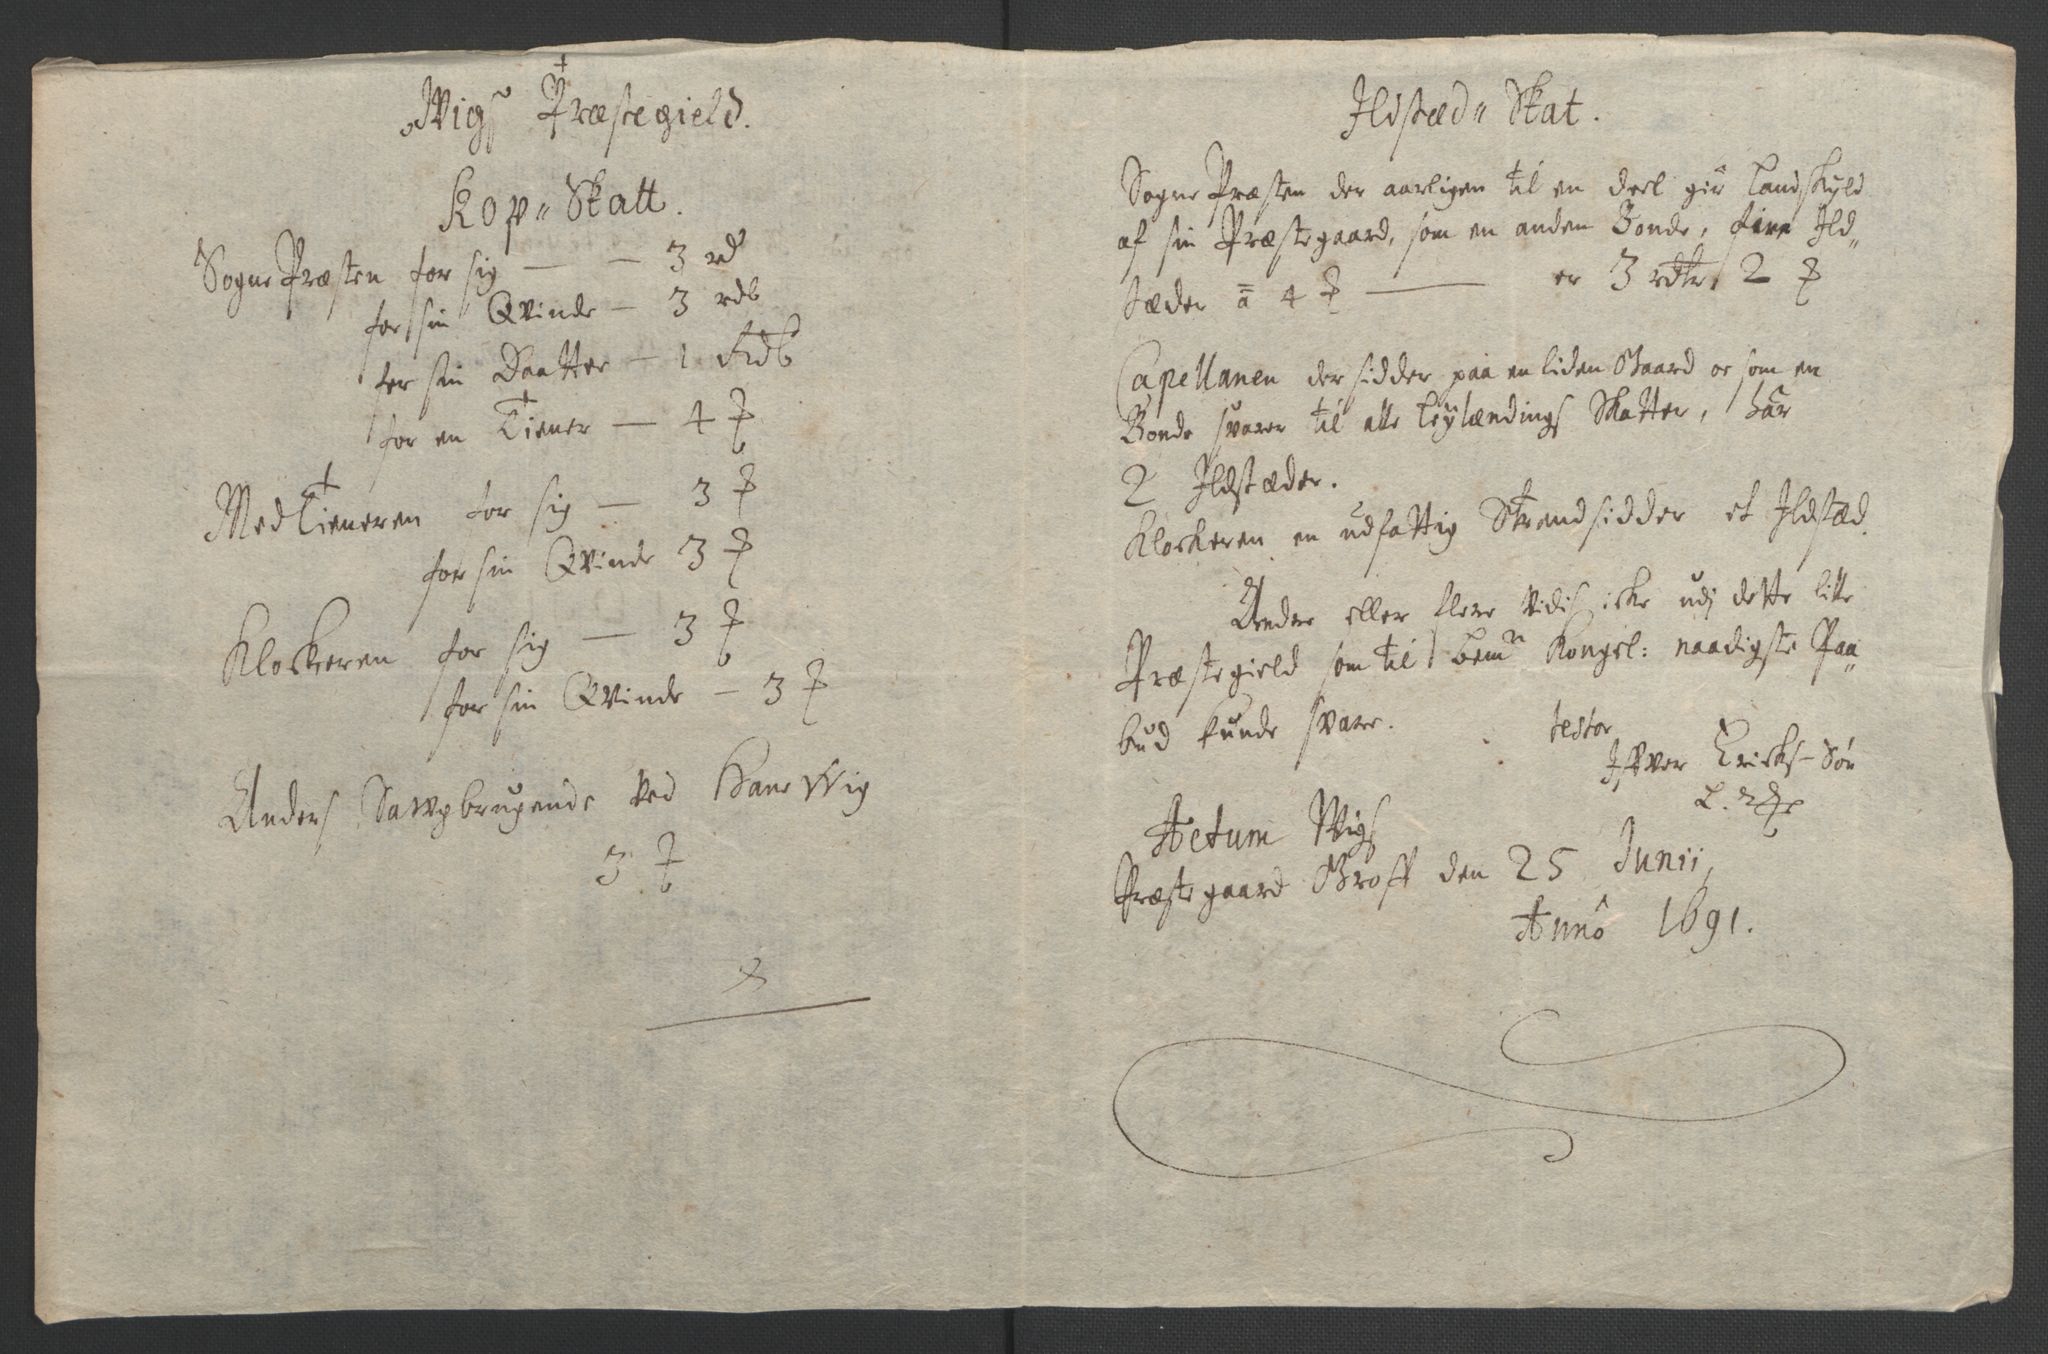 Wigs Præstegield.
Kop- Skatt.
Sogne Præsten for sig — — 3 rd
for sin Qvinde — 3 rdr
for sin Daatter — 1 rdr
for en Tiener — 4 ꝑ
MedTieneren for sig — 3 ꝑ
for sin Qvinde 3 ꝑ
Klockeren for sig — 3 ꝑ
for sin Qvinde — 3 ꝑ
Anders Sawgbrugende ved Hane Wig
3 ꝑ
Ildstæd- Skat.
Sogne Præsten der aarligen til en deel gir Landskyld
af sin Præstegaard, som en anden Bonde, fire Ild-
stæder a 4 ꝑ —— er 3 rdlr, 2 ꝑ
Capellanen der sidder paa en liden Gaard oc som en
Bonde svarer til alle leylændings Skatter, har
2 Ildstæder.
Klockeren en udfattig Strandsidder et Ildstæd.
Andre eller flere vidis icke udj dette lille
Præstegield som til bemte Kongel: naadigste Paa-
bud kunde svare. testor
Iffver Ericks-Søn
Actum Wigs
Præstegaard Groff den 25 Junii,
Anno 1691.